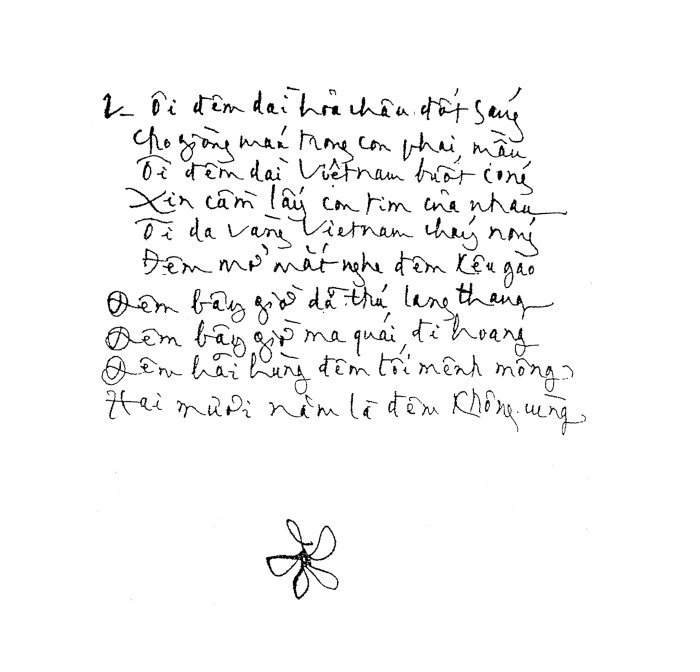 2- Ôi đêm dài hoả châu đốt sáng
Cho giòng máu trong con phai mầu
Ôi đêm dài Việt nam buốt cóng
Xin cầm lấy con tim của nhau
Ôi da vàng Vietnam cháy nóng
Đêm mở mắt nghe đêm kêu gào
Đêm bây giờ dã thú lang thang
Đêm bây giờ ma quái đi hoang
Đêm hãi hùng đêm tối mênh mông
Hai mươi năm là đêm không cùng